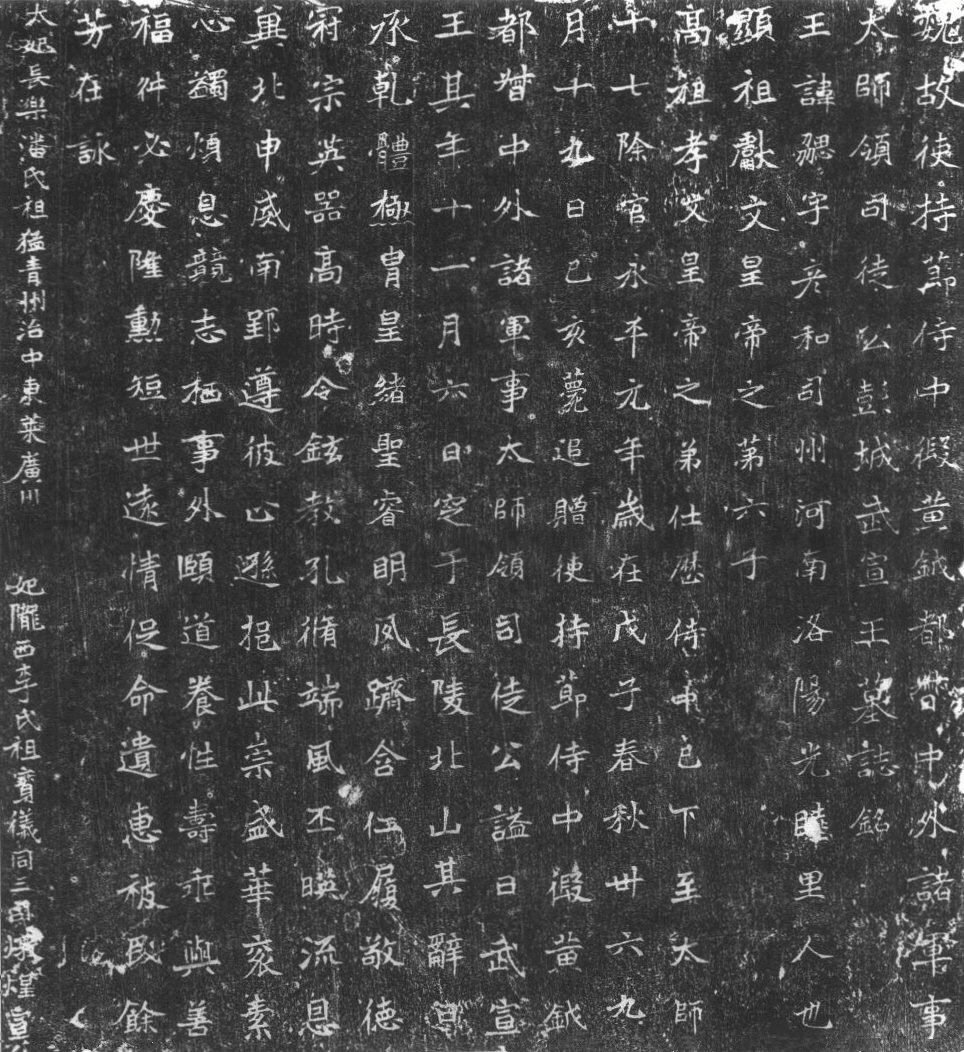 魏故使持莭侍中假黄鉞都督中外諸軍事
太師領司徒公彭城武宣王墓誌銘
王諱勰字彦和司州河南洛陽光睦里人也
顯祖獻文皇帝之第六子
髙祖孝文皇帝之弟仕歷侍中已下至太師
十七除官永平元年歲在戊子春秋卅六九
月十九日己亥薨追贈使持莭侍中假黄鉞
都督中外諸軍事太師領司徒公謚曰武宣
王其年十一月六日窆于長陵北山其辭曰
承乹體極胄皇緒聖睿明夙躋含仁履敬德
冠宗英器高時令鉉教孔脩端風丕暎流恩
冀北申威南郢遵彼止遜挹此崇盛華衮素
心蠲煩息競志栖事外頤道養性壽乖與善
福舛必慶隆勲短世遠情促命遺惠被民餘
芳在詠
太妃長樂潘氏祖猛青州治中東萊廣川
妃隴西李氏祖寳儀同三司燉煌宣